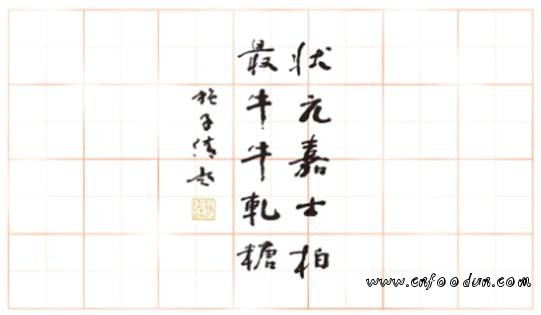 状元嘉士柏
最牛牛軋糖
施子清题
www.cnfoodun.com